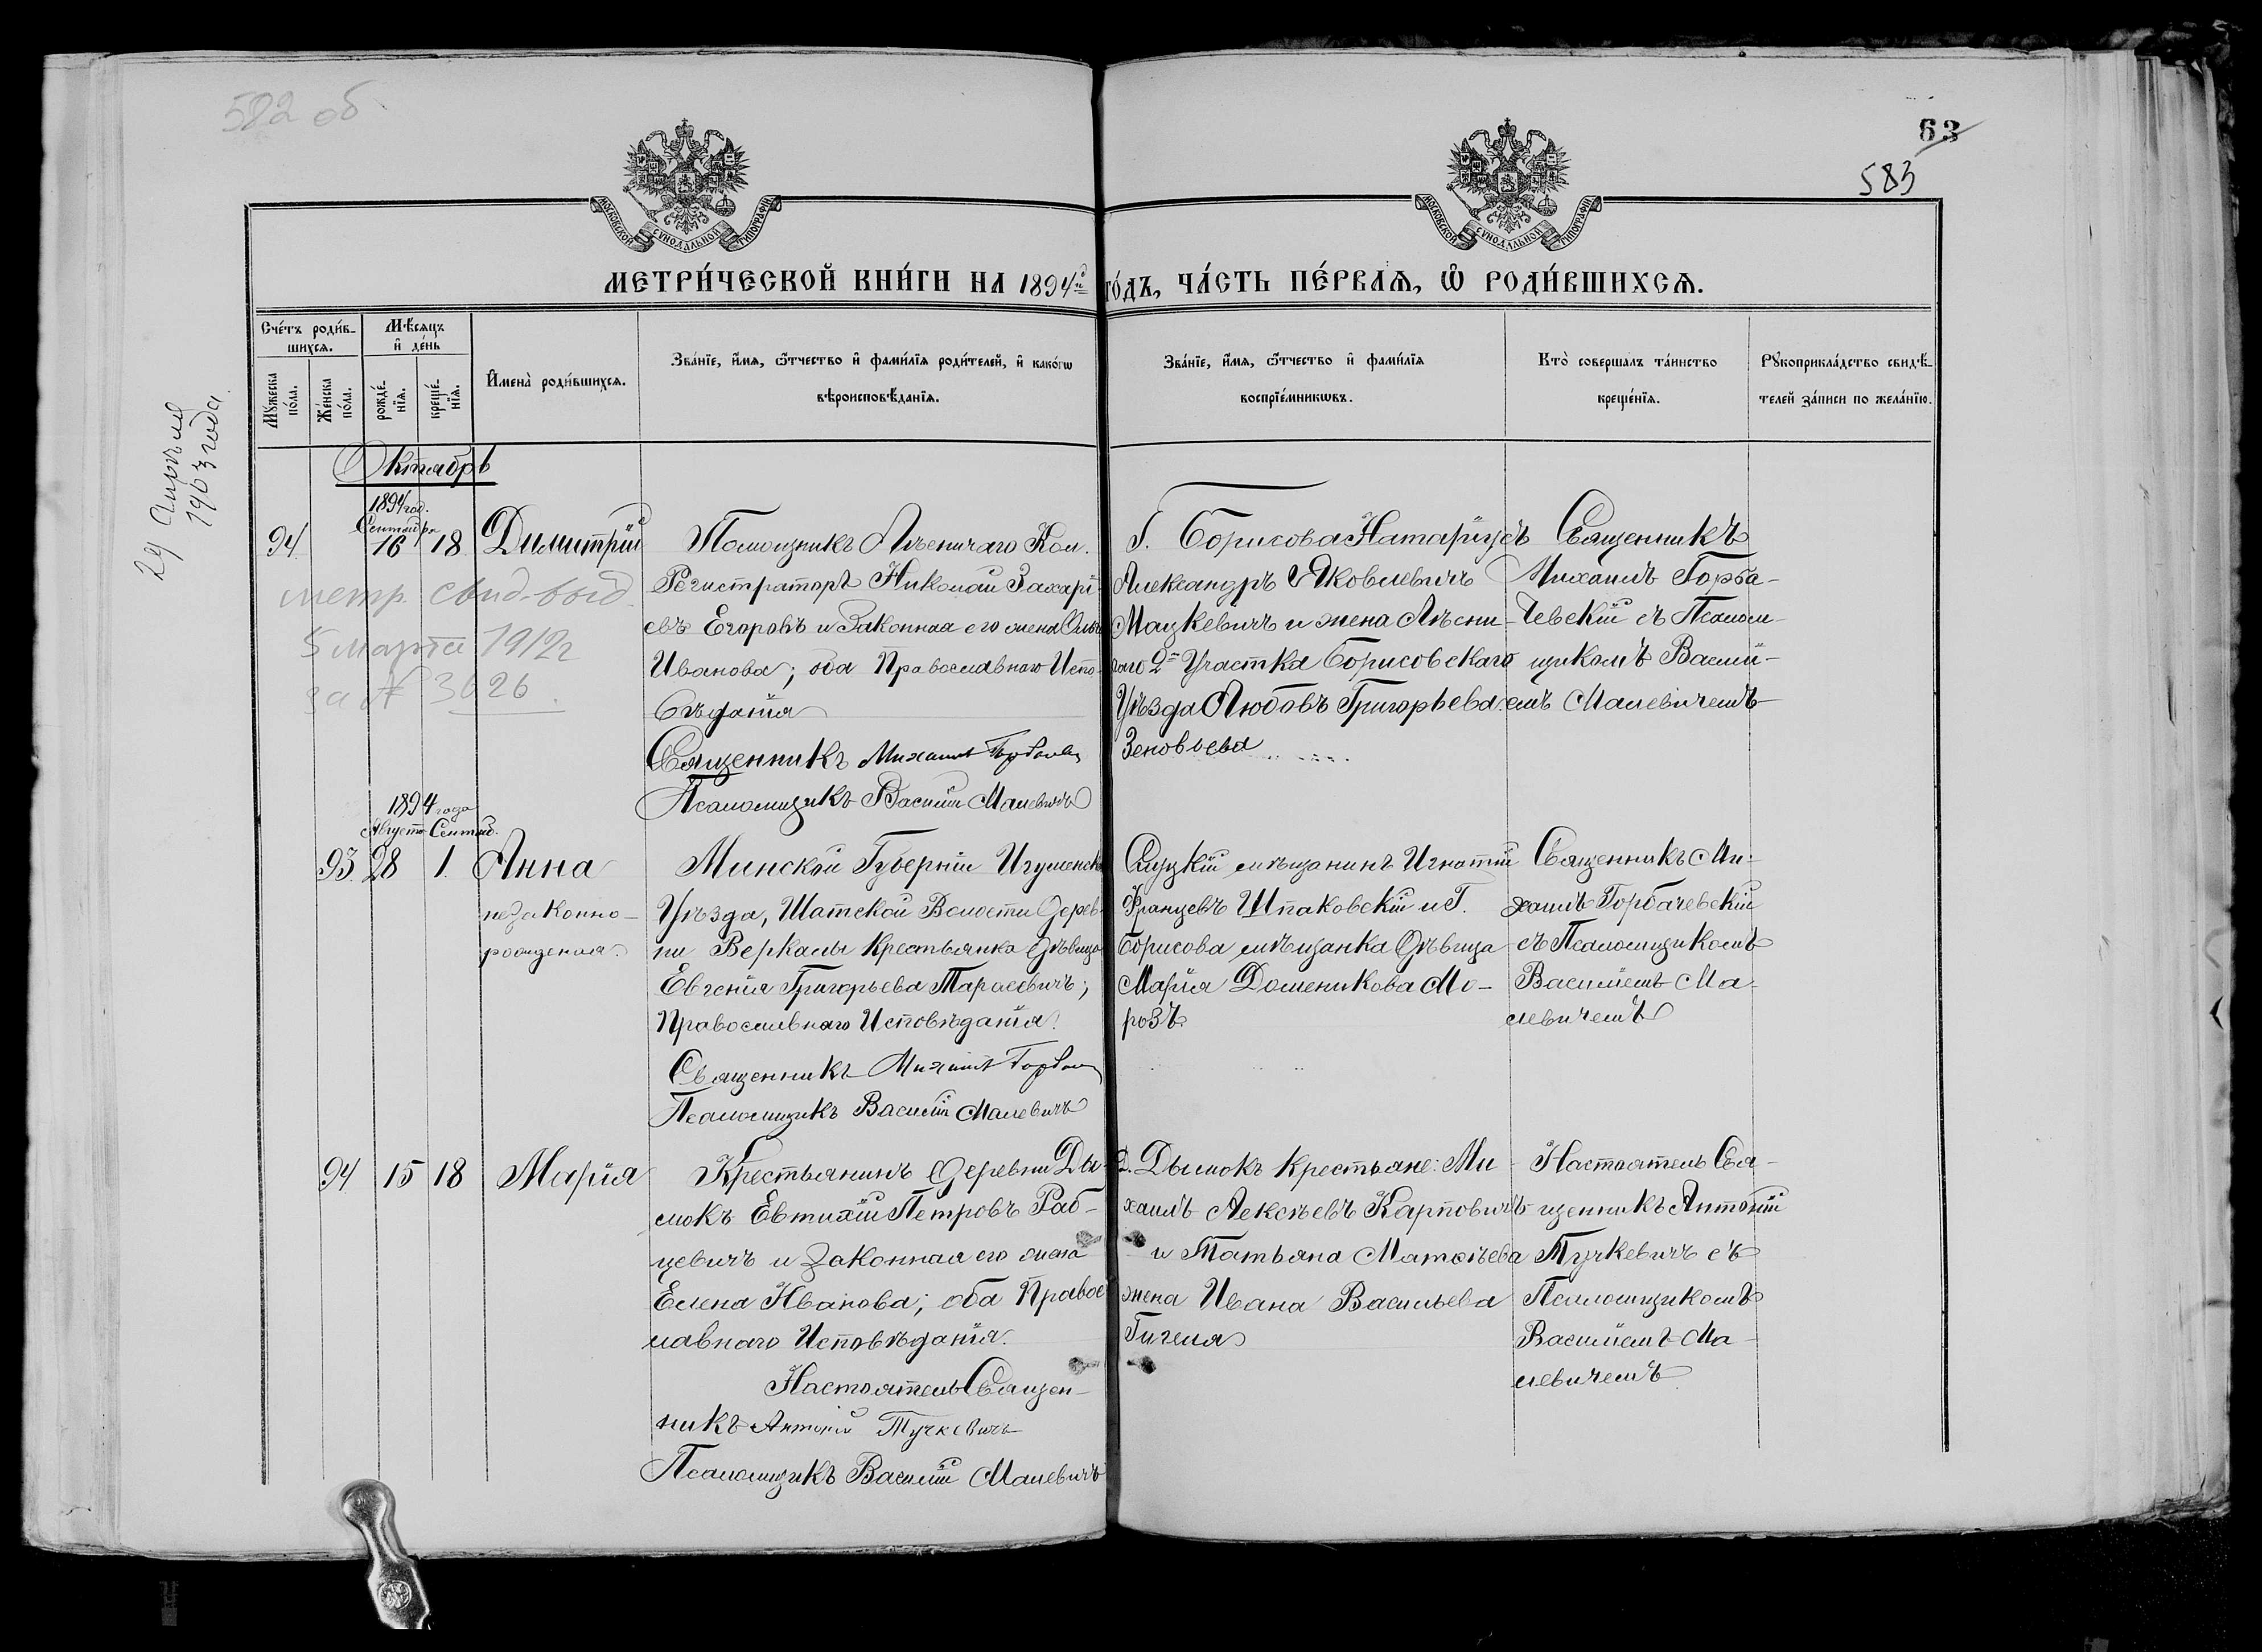 582 об
63
583
МОСКОВСКОЙ СУНОДАЛЬНОЙ ТИПОГРАФІИ
МОСКОВСКОЙ СУНОДАЛЬНОЙ ТИПОГРАФІИ
МЕТРИ́ЧЕСКОЙ КНИ́ГИ НА 1894й го́дъ, ЧА́СТЬ ПЕ́РВАѦ, Ѡ҆ РОДИ́ВШИХСѦ.
Сче́тъ роди́в-
шихсѧ.
Мꙋ́жеска по́ла.
Же́нска по́ла.
Мѣ́сѧцъ
и҆ де́нь
рожде́-
нїѧ.
креще́-
нїѧ.
И҆мена̀ роди́вшихсѧ.
Зва́нїе, и҆́мѧ, ѻ҆́тчество и҆ фами́лїѧ роди́телей, и҆ како́гѡ
вѣроисповѣ́данїѧ.
Зва́нїе, и҆́мѧ, ѻ҆́тчество и҆ фами́лїѧ
воспрїе́мникѡвъ.
Кто̀ соверша́лъ та́инство
креще́нїѧ.
Рꙋкоприкла́дство свидѣ́-
телей за́писи по жела́нїю.
29 Апрѣля
1903 года.
Октябрь
1894 год.
Сентября
94 16 18 Димитрій
метр. свид. выд.
5 марта 1912 г
за № 3626.
Помощникъ Лѣсничаго Кол.
Регистраторъ Николай Захарі-
евъ Егоровъ и Законная его жена Ольга
Иванова; оба Православнаго Испо-
вѣданія
Священникъ Михаилъ Горбачев
Псаломщикъ Василій Малевичъ
Г. Борисова Натаріусъ
Александръ Яковлевичъ
Мацкевичъ и жена Лѣсни-
чаго 2го Участка Борисовскаго
Уѣзда Любовь Григорьева
Зеновьева
Священникъ
Михаилъ Горба-
чевскій съ Псалом-
щикомъ Василі-
емъ Малевичемъ
1894 года
Августъ Сентяб.
93 28 1. Анна
незаконно-
рожденная.
Минской Губерніи Игуменск
Уѣзда, Шатской Волости Дерев-
ни Веркалы Крестьянка Дѣвица
Евгенія Григорьева Тарасевичъ;
Православнаго Исповѣданія.
Священникъ Михаилъ Горбач
Псаломщикъ Василій Малевичъ
Слуцкій мѣщанинъ Игнатій
Францевъ Шпаковскій и Г.
Борисова мѣщанка Дѣвица
Марія Доменикова Мо-
розъ
Священникъ Ми-
хаилъ Горбачевскій
съ Псаломщикомъ
Василіемъ Ма-
левичемъ
94 15 18 Марія
Крестьянинъ Деревни Ды-
мокъ Евтихій Петровъ Раб-
цевичъ и Законная его жена
Елена Иванова; оба Правос-
лавнаго Исповѣданія.
Настоятель Священ-
никъ Антоній Тучкевичъ
Псаломщикъ Василій Малевичъ
Д. Дымокъ Крестьяне: Ми-
хаилъ Алексѣевъ Карповичъ
и Татьяна Матѳѣева
жена Ивана Васильева
Гигеля
Настоятель Свя-
щенникъ Антоній
Тучкевичъ съ
Псаломщикомъ
Василіемъ Ма-
левичемъ